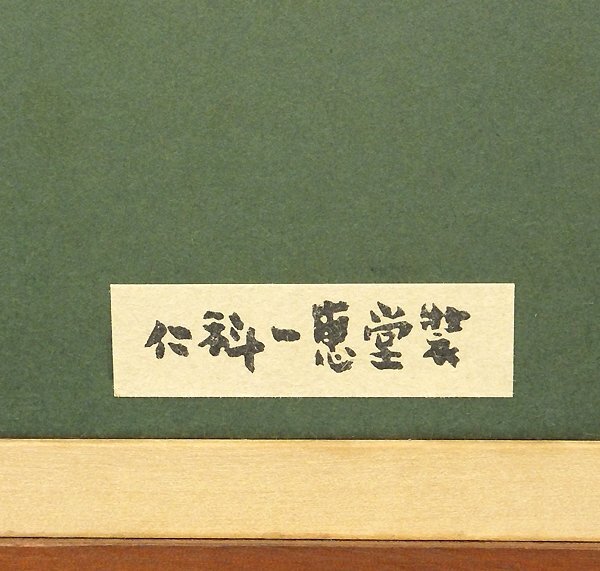 仁科一恵堂装